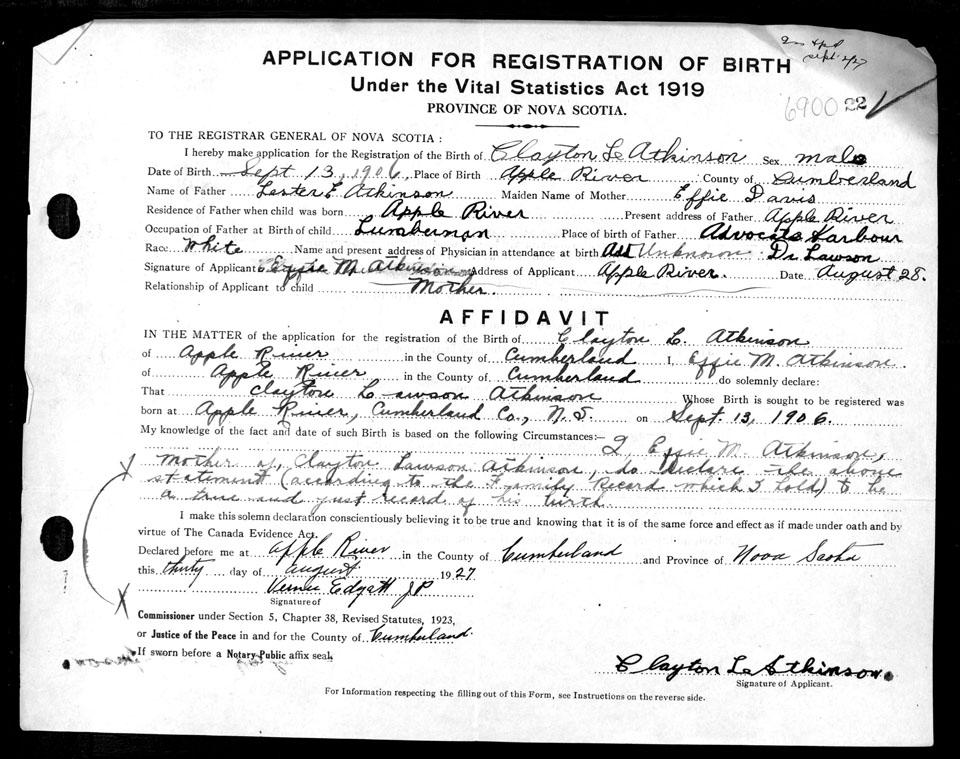 2n
Sept 2/27
APPLICATION FOR REGISTRATION OF BIRTH
Under the Vital Statistics Act 1919
PROVINCE OF NOVA SCOTIA.
6900 22
TO THE REGISTRAR GENERAL OF NOVA SCOTIA :
I hereby make application for the Registration of the Birth of Clayton L. Atkinson Sex male
Date of Birth Sept 13, 1906, Place of Birth Apple River County of Cumberland
Name of Father Lester E. Atkinson Maiden Name of Mother Effie Davis
Residence of Father when child was born Apple River Present address of Father Apple River
Occupation of Father at Birth of child Lumberman Place of birth of Father Advocate Harbour
Race White Name and present address of Physician in attendance at birth Add Unknown Dr Lawson
Signature of Applicant Effie M. Atkinson Address of Applicant Apple River. Date August 28.
Relationship of Applicant to child Mother.
AFFIDAVIT
IN THE MATTER of the application for the registration of the Birth of Clayton L. Atkinson
of Apple River in the County of Cumberland I, Effie M. Atkinson.
of Apple River in the County of Cumberland do solemnly declare:
That Clayton Lawson Atkinson Whose Birth is sought to be registered was
born at Apple River, Cumberland Co., N.S. on Sept. 13, 1906.
My knowledge of the fact and date of such Birth is based on the following Circumstances:— I, Effie M. Atkinson,
X mother of, Clayton Lawson Atkinson, do declare the above
statement (according to the Family Record which I hold) to be
a true and just record of his birth.
I make this solemn declaration conscientiously believing it to be true and knowing that it is of the same force and effect as if made under oath and by
virtue of The Canada Evidence Act.
Declared before me at Apple River in the County of Cumberland and Province of Nova Scotia
this thirty day of august 1927
X Edgett J P
Signature of
Commissioner under Section 5, Chapter 38, Revised Statutes, 1923,
or Justice of the Peace in and for the County of Cumberland.
If sworn before a Notary Public affix seal.
Clayton L. Atkinson.
Signature of Applicant.
For Information respecting the filling out of this Form, see Instructions on the reverse side.